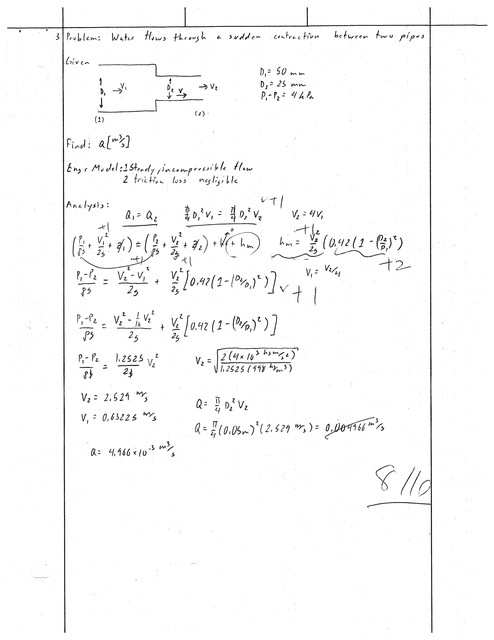 3 Problem: Water flows through a sudden contraction between two pipes
Given
D₁ →V₁ D₂ V →V₂
(1) (2)
D₁ = 50 mm
D₂ = 25 mm
P₁-P₂ = 4 kPa
Find: Q [m³/s]
Engr Model: 1 Steady, incompressible flow
2 friction loss negligible
Analysis:
Q₁ = Q₂ π/4 D₁² V₁ = π/4 D₂² V₂ ✓+1 V₂ = 4V₁
+1 +1 +1 +1
(P₁/ρg + V₁²/2g + z₁) = (P₂/ρg + V₂²/2g + z₂) + hm hm = V₂²/2g (0.42 (1 - (D₂/D₁)²) +2
V₁ = V₂/4
(P₁-P₂)/ρg = (V₂² - V₁²)/2g + V₂²/2g [0.42 (1 - (D₂/D₁)²] ✓ +1
(P₁-P₂)/ρg = (V₂² - 1/16 V₂²)/2g + V₂²/2g [0.42 (1 - (D₂/D₁)²]
(P₁-P₂)/ρg = 1.2525/2g V₂² V₂ = √(2(4×10³ kg m/s²)/1.2525(998 kg/m³))
V₂ = 2.529 m/s Q = π/4 D₂² V₂
V₁ = 0.63225 m/s Q = π/4 (0.05m)² (2.529 m/s) = 0.004966 m³/s
Q = 4.966×10⁻³ m³/s
8/10